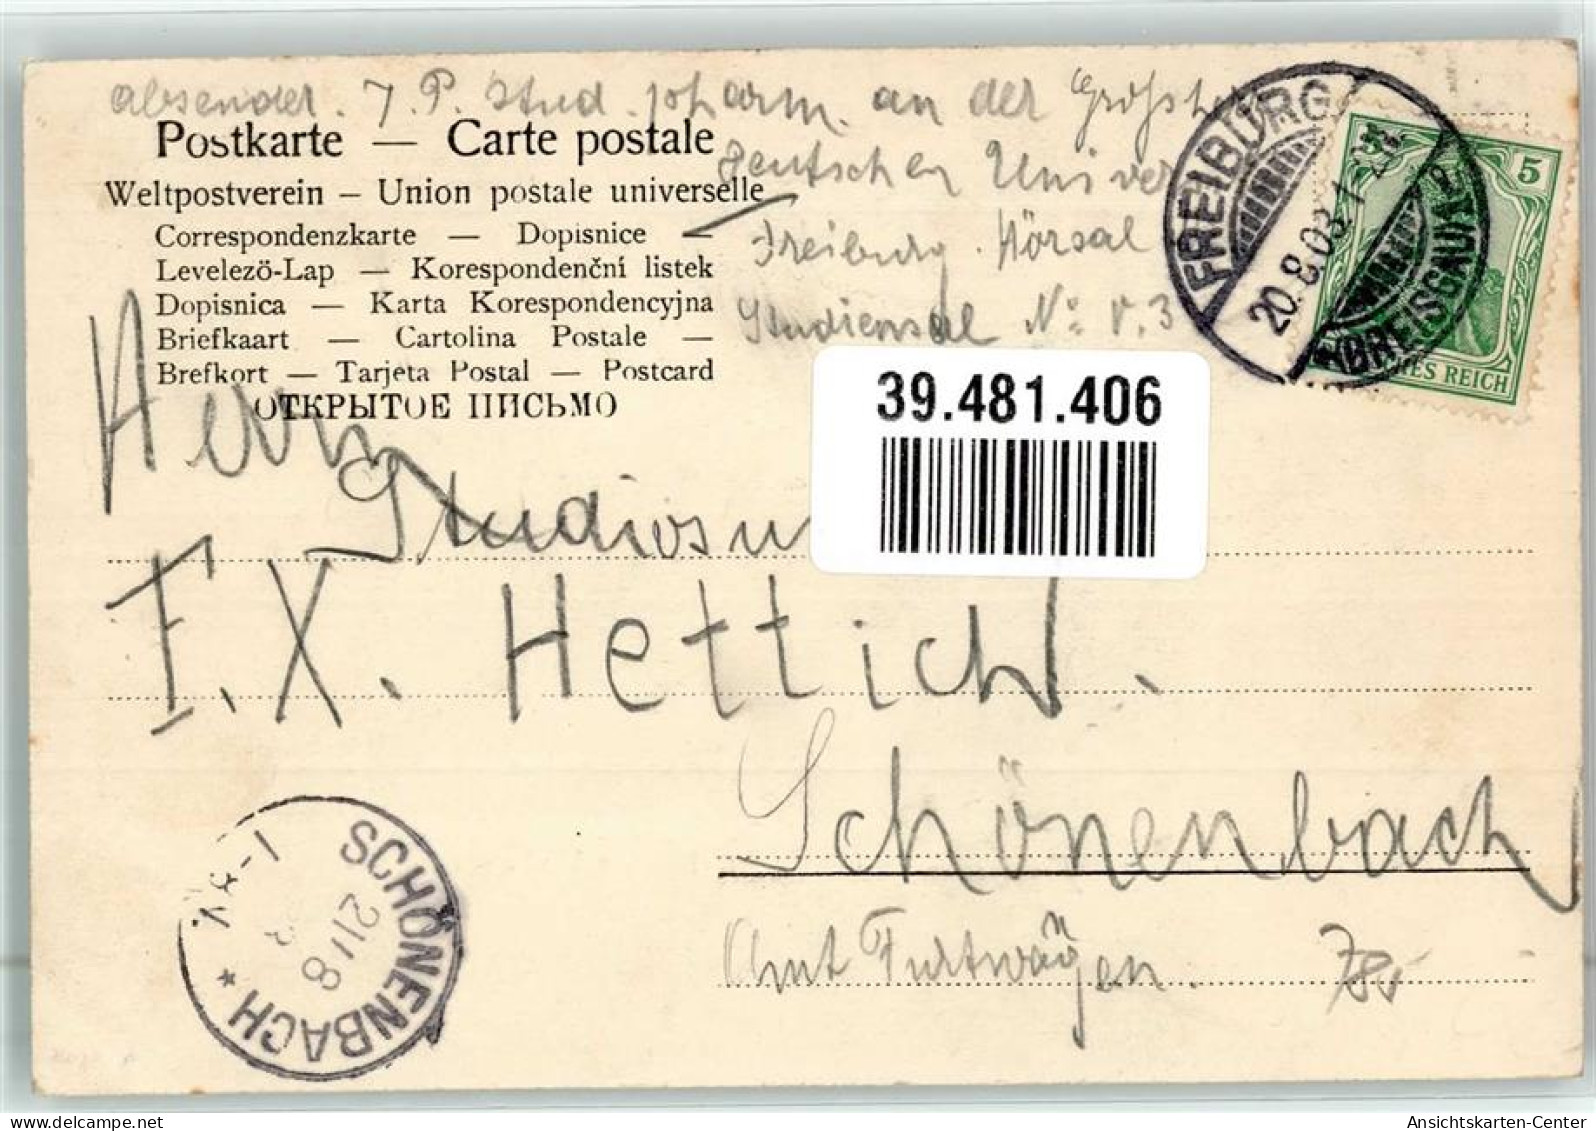 absender. J. P. Stud. pharm. an der Grossh
Postkarte — Carte postale
deutschen Univer
Weltpostverein – Union postale universelle
Freiburg. Hörsal
Correspondenzkarte — Dopisnice —
Levelező-Lap — Korespondenční listek
Dopisnica — Karta Korespondencyjna
Studiensal No V. 3
Briefkaart — Cartolina Postale —
Brefkort — Tarjeta Postal — Postcard
ОТКРЫТОЕ ПИСЬМО
FREIBURG
20.8.03.
(BREISGAU)
5
5
REICH
39.481.406
Herrn
Studiosu
F. X. Hettich.
Schönenbach
Amt Furtwangen.
SCHÖNENBACH *
21/8
delcampe.net
Ansichtskarten-Center